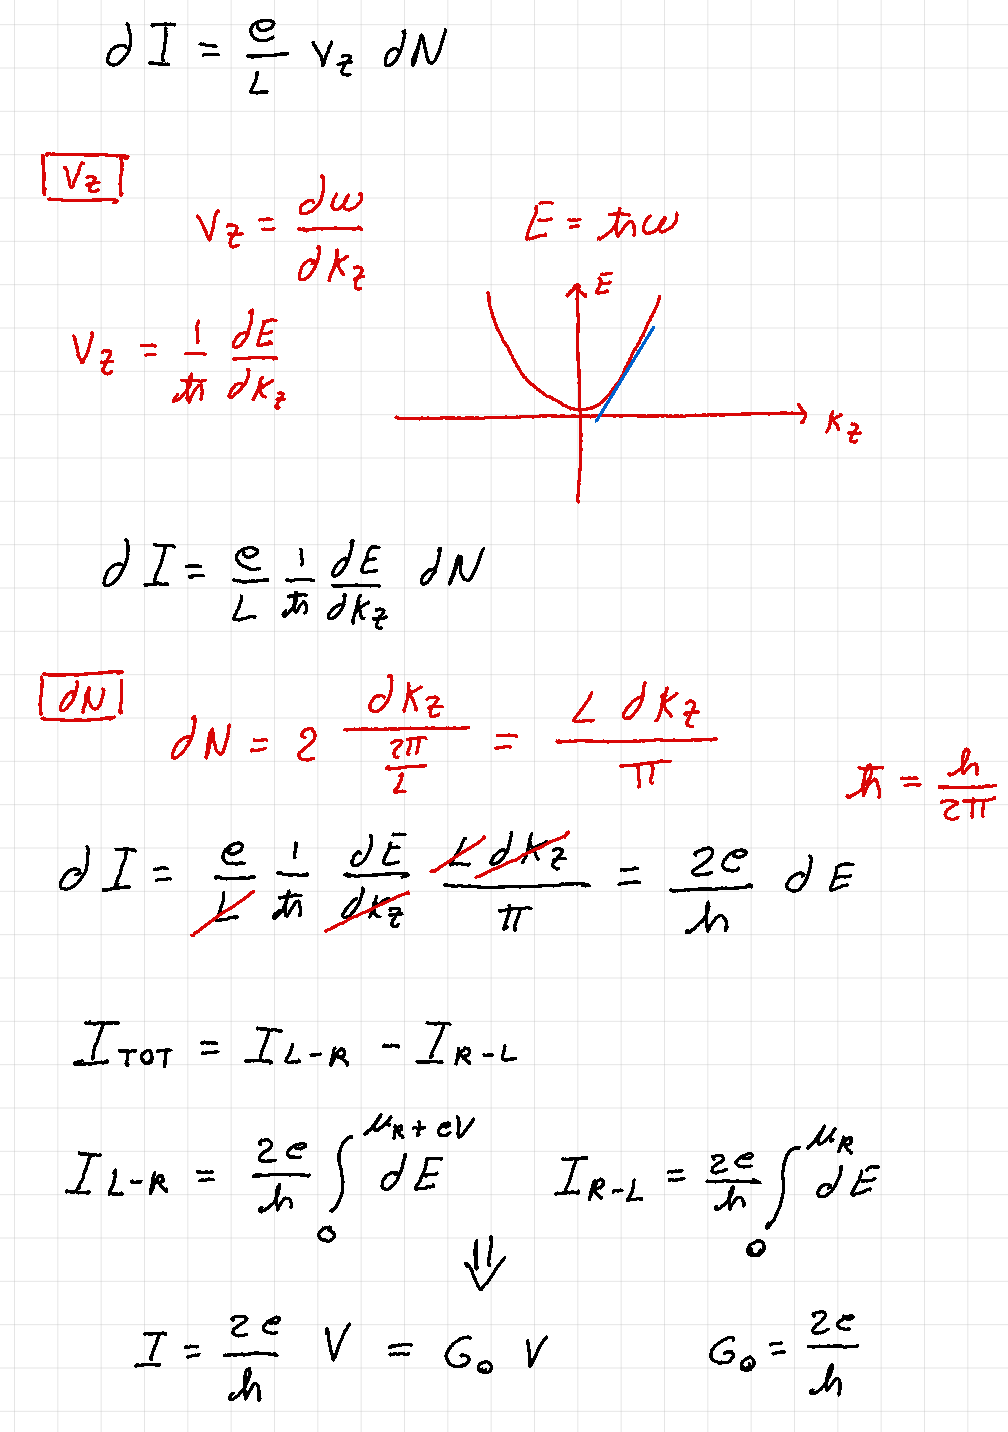 dI = e/L v_z dN
v_z
v_z = dω/dk_z    E = ħω
E
v_z = 1/ħ dE/dk_z
k_z
dI = e/L 1/ħ dE/dk_z dN
dN
dN = 2 dk_z/(2π/L) = L dk_z/π
ħ = h/2π
dI = e/L 1/ħ dE/dk_z L dk_z/π = 2e/h dE
I_TOT = I_L-R - I_R-L
I_L-R = 2e/h ∫_0^{μ_R + eV} dE    I_R-L = 2e/h ∫_0^{μ_R} dE
⇓
I = 2e/h V = G_0 V    G_0 = 2e/h